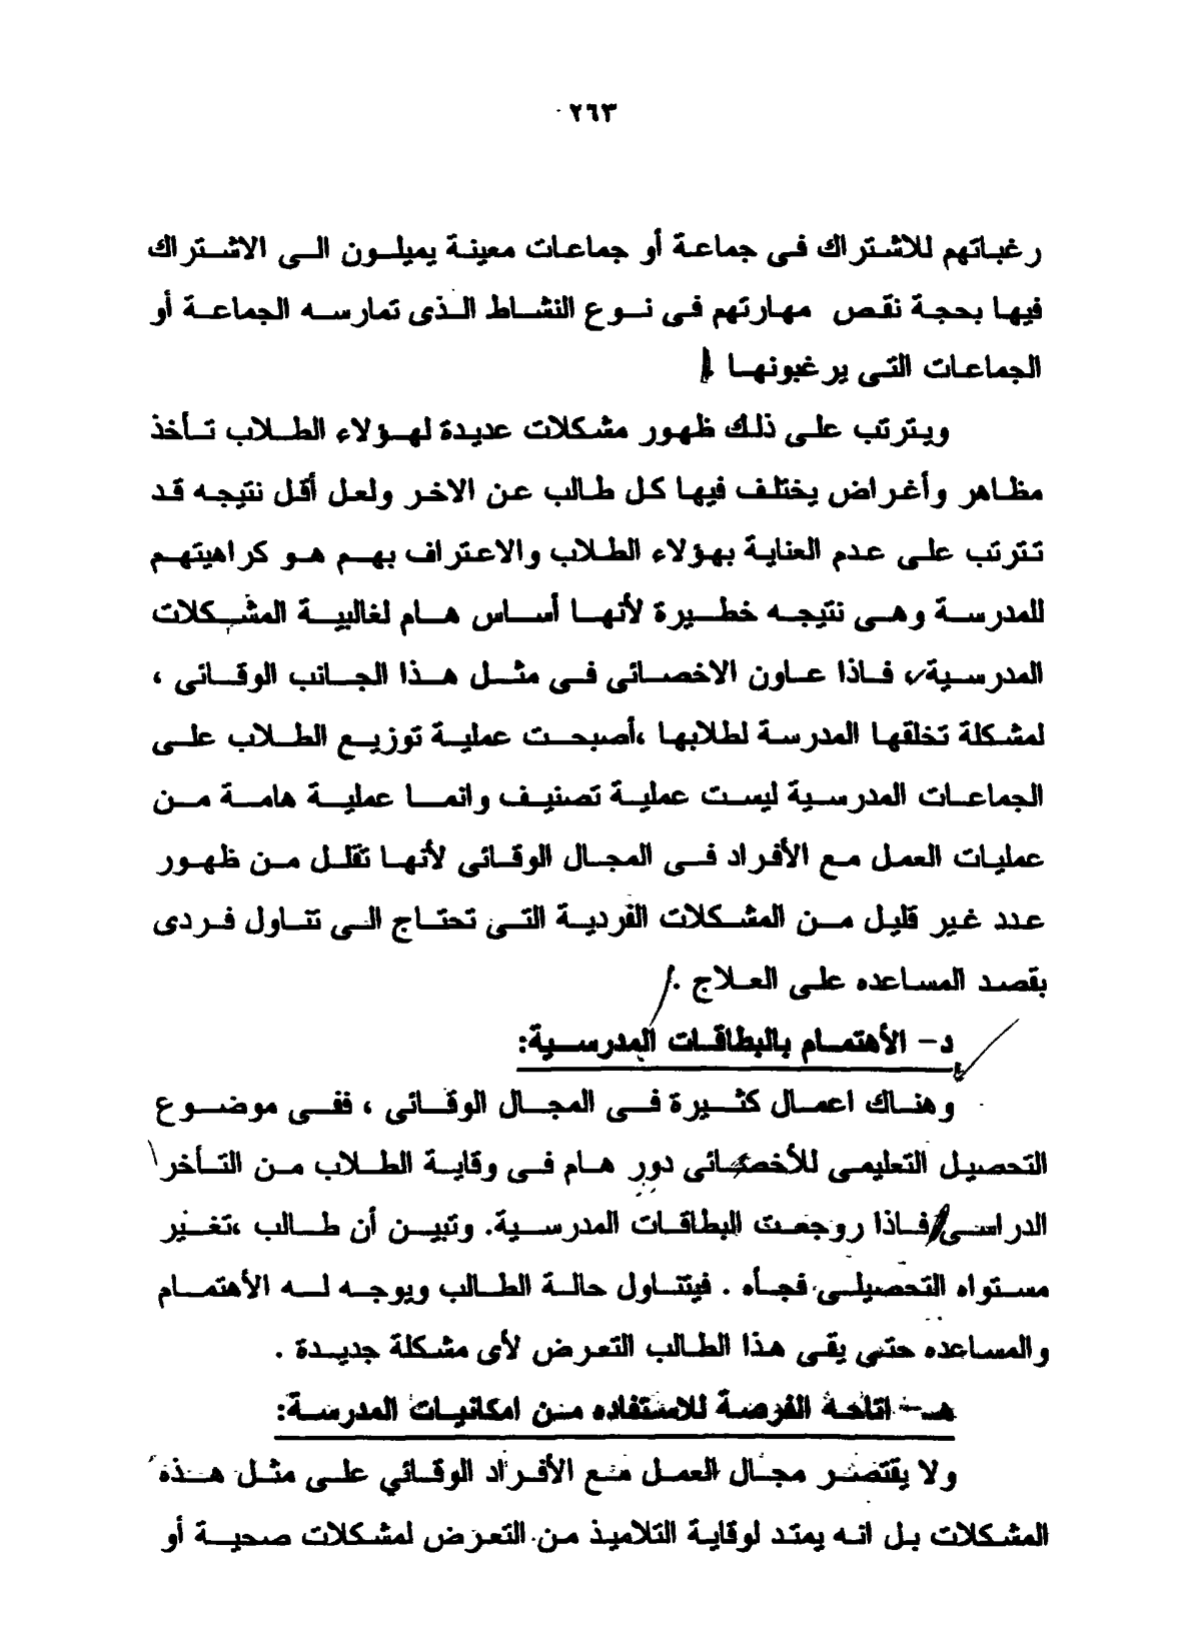 ٢٦٣
رغباتهم للاشتراك فى جماعة أو جماعات معينة يميلون الى الاشتراك
فيها بحجة نقص مهارتهم فى نوع النشاط الذى تمارسه الجماعة أو
الجماعات التى يرغبونها
ويترتب على ذلك ظهور مشكلات عديدة لهؤلاء الطلاب تأخذ
مظاهر وأغراض يختلف فيها كل طالب عن الاخر ولعل أقل نتيجه قد
تترتب على عدم العناية بهؤلاء الطلاب والاعتراف بهم هو كراهيتهم
للمدرسة وهى نتيجه خطيرة لأنها أساس هام لغالبية المشكلات
المدرسية، فاذا عاون الاخصائى فى مثل هذا الجانب الوقائى ،
لمشكلة تخلقها المدرسة لطلابها ،أصبحت عملية توزيع الطلاب على
الجماعات المدرسية ليست عملية تصنيف وانما عملية هامة من
عمليات العمل مع الأفراد فى المجال الوقائى لأنها تقلل من ظهور
عدد غير قليل من المشكلات الفردية التى تحتاج الى تتاول فردى
بقصد المساعده على العلاج .
د- الأهتمام بالبطاقات المدرسية:
وهناك اعمال كثيرة فى المجال الوقائى ، ففى موضوع
التحصيل التعليمى للأخصائى دور هام فى وقاية الطلاب من التأخر
الدراسى فاذا روجعت البطاقات المدرسية. وتبين أن طالب ،تغير
مستواه التحصيلى فجأه . فيتتاول حالة الطالب ويوجه له الأهتمام
والمساعده حتى يقى هذا الطالب التعرض لأى مشكلة جديدة .
هـ- اتاحة الفرصة للاستفاده من امكانيات المدرسة:
ولا يقتصر مجال العمل مع الأفراد الوقائي على مثل هذه
المشكلات بل انه يمتد لوقاية التلاميذ من التعرض لمشكلات صحية أو